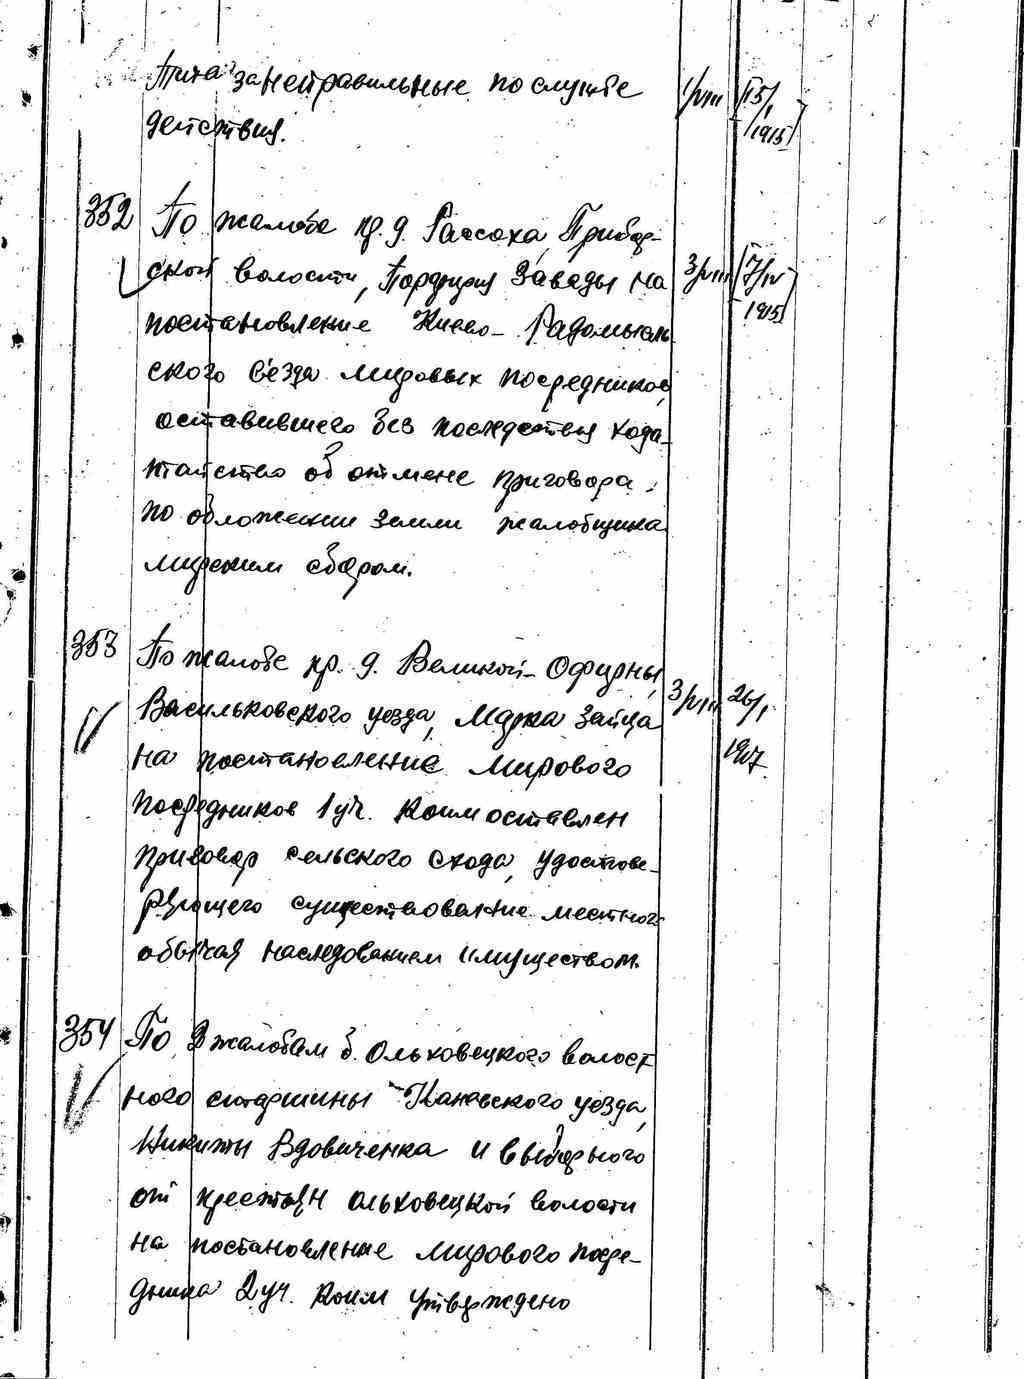 Тита за неправильные по службе 1/VIII 15/I
действия. 1915
352 По жалобе кр. д. Рассоха, Прибор-
ской волости, Порфирия Завады на 3/VIII 7/IV
постановление Киево-Радомысль 1915
ского съезда мировых посредников,
оставившего без последствия хода-
тайство об отмене приговора
по обложении земли жалобщика
мирским сбором.
353 По жалобе кр. д. Великой-Офирны,
Васильковского уезда, Марка Зайца 3/VIII 26/I
на постановление мирового 1907
посредников 1 уч. коим оставлен
приговор сельского схода, удостове-
ряющего существование местного
обычая наследованием имуществом.
354 По 2 жалобам б. Ольховецкого волост
ного старшины Каневского уезда,
Никиты Вдовиченка и выборного
от крестьян ольховецкой волости
на постановление мирового посре-
дника 2 уч. коим утверждено